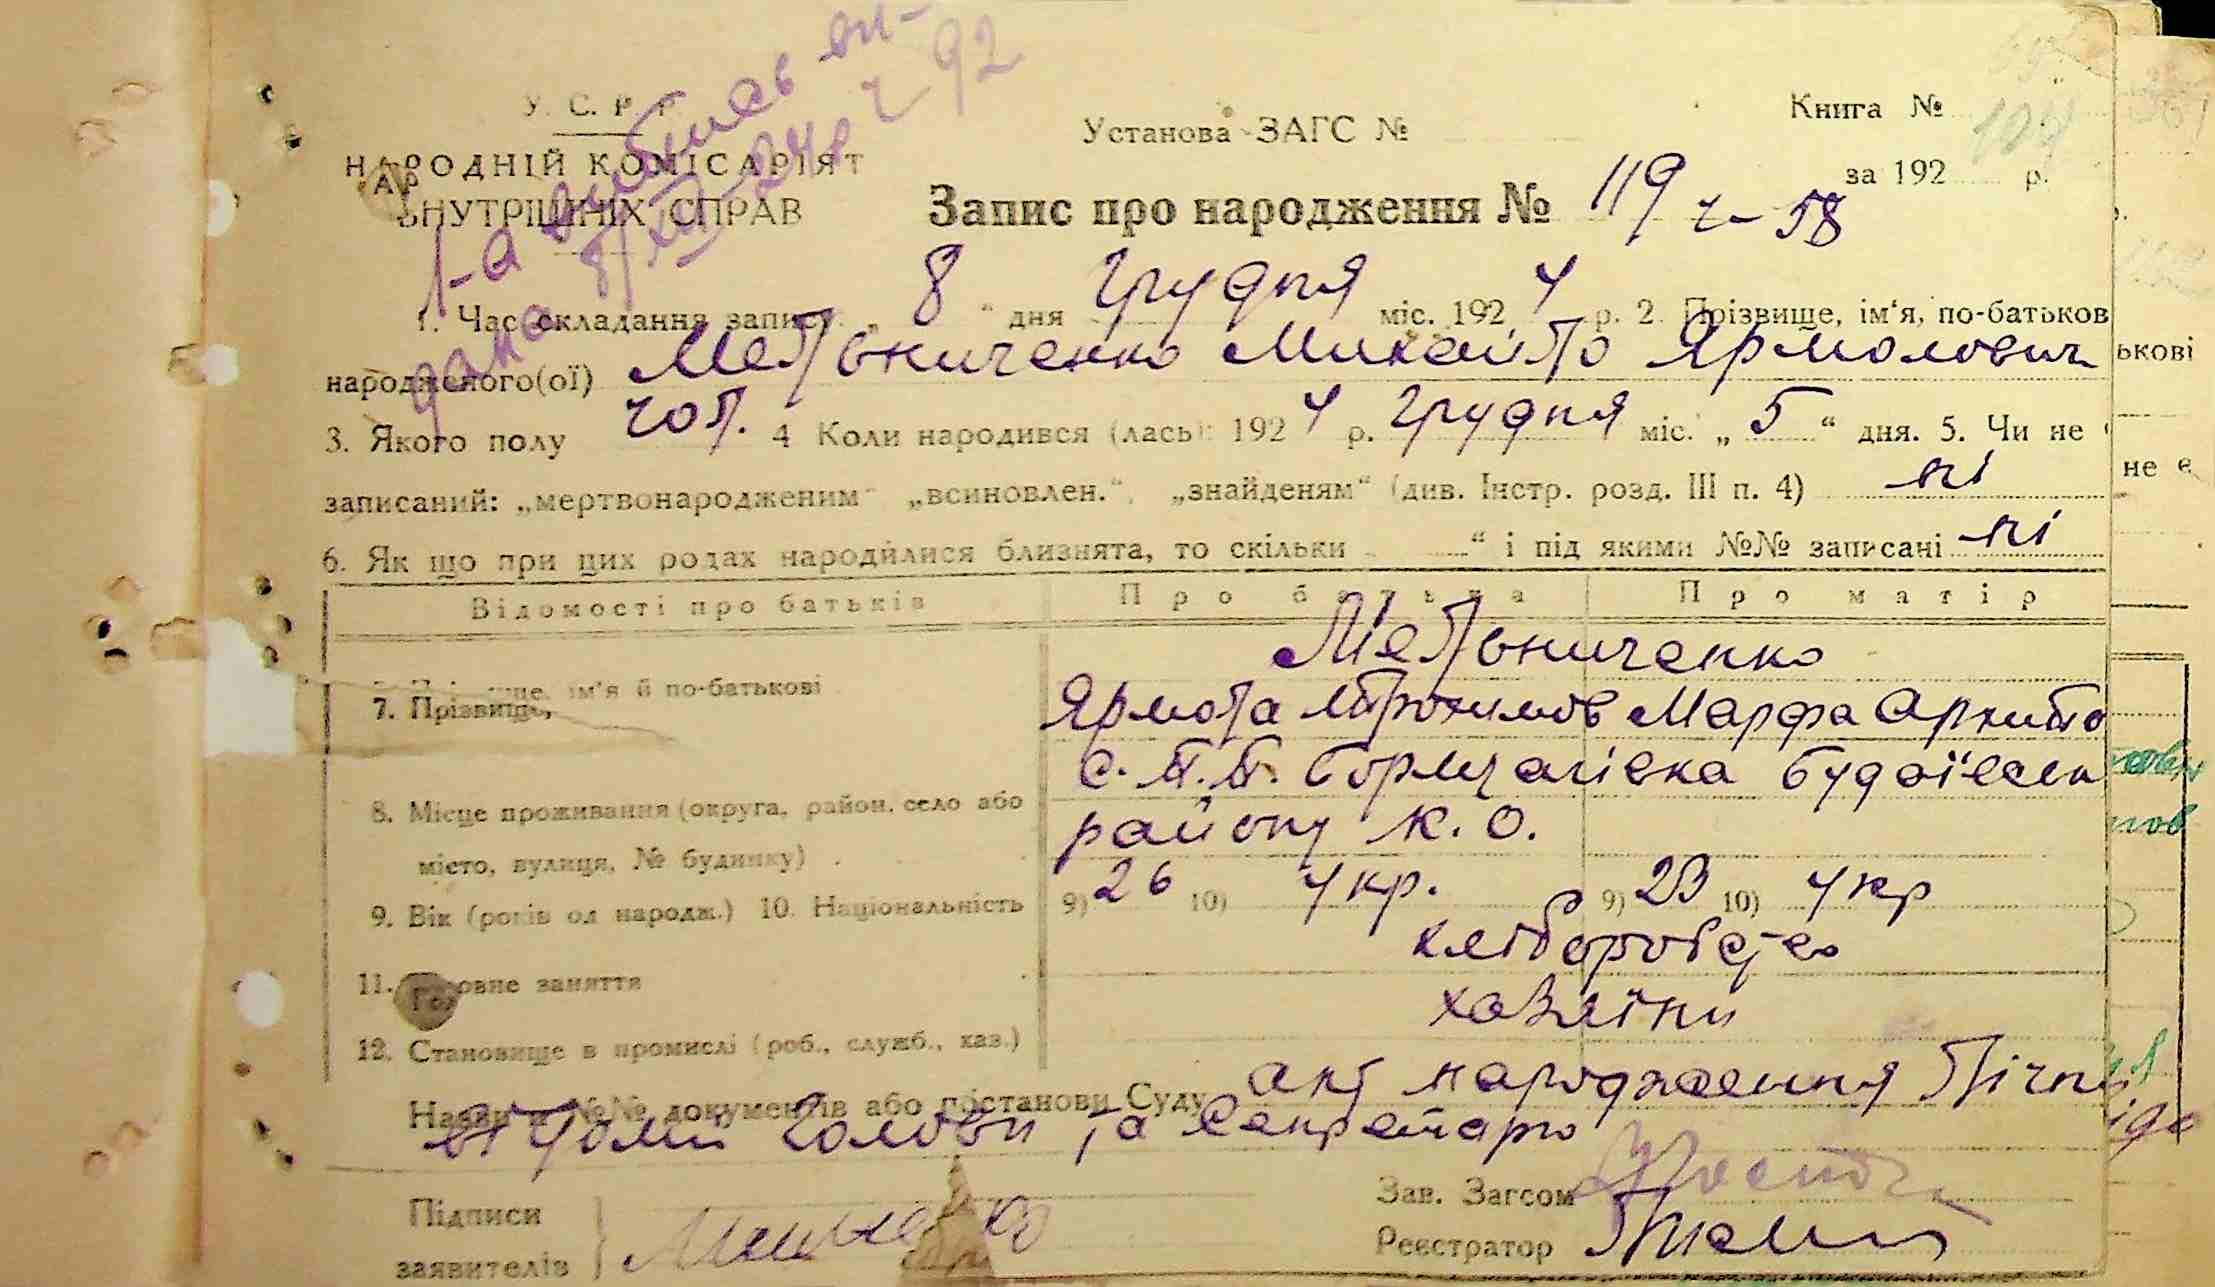 У. С. Р. Р.
НАРОДНІЙ КОМІСАРІЯТ
ВНУТРІШНІХ СПРАВ
1-а выбись ви-
дана 8/XII-24р ч 92
Установа ЗАГС №
Книга №
за 192 р.
Запис про народження № 119 ч-58
1. Час складання запису „ 8 “ дня Грудня міс. 192 4 р. 2. Прізвище, ім‘я, по-батьков
народженого(ої) Мельниченко Михайло Ярмолович
3. Якого полу чол. 4 Коли народився (лась): 192 4 р. Грудня міс. „ 5 “ дня. 5. Чи не
записаний: „мертвонародженим“ „всиновлен.“, „знайденям“ (див. Інстр. розд. III п. 4) ні
6. Як що при цих родах народилися близнята, то скільки “ і під якими №№ записані ні
Відомості про батьків Про батька Про матір
Мельниченко
7. Прізвище, ім‘я й по-батькові Ярмола Трохимов Марфа Архипо
с. П.П. Борщагівка Будаївськ
8. Місце проживання (округа, район, село або
місто, вулиця, № будинку) району К. О.
9. Вік (років од народж.) 10. Національність 9) 26 10) укр. 9) 23 10) укр
11. Головне заняття хліборобство
12. Становище в промислі (роб., служб., хаз.) хазяїни
Назви й №№ документів або постанови Суду акт народження Лічно
відомі Голови та Секретарю
Підписи
заявителів
Зав. Загсом
Реєстратор
ькові
не є